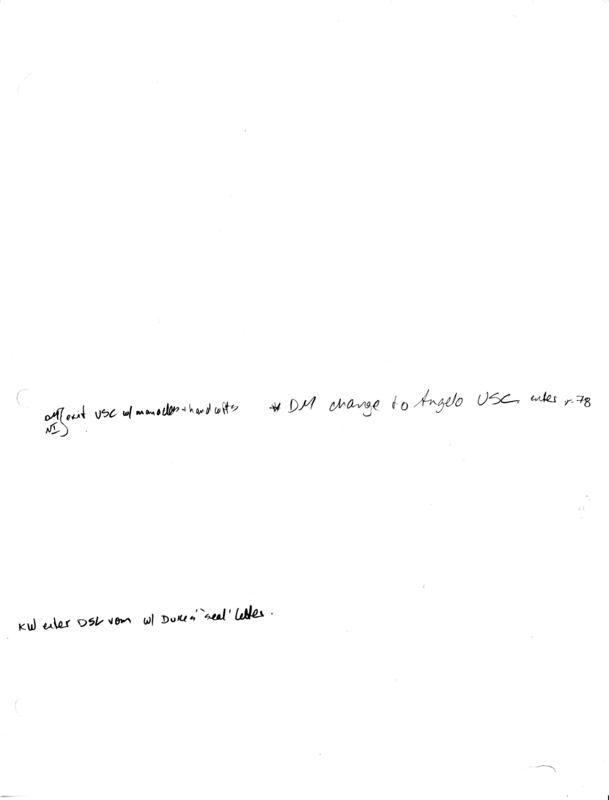 DM} exit USC w/ manacles + handcuffs * DM change to Angelo USC, enter p. 78
NI}
KW enter DSL vom w/ Duke's 'seal' letter.